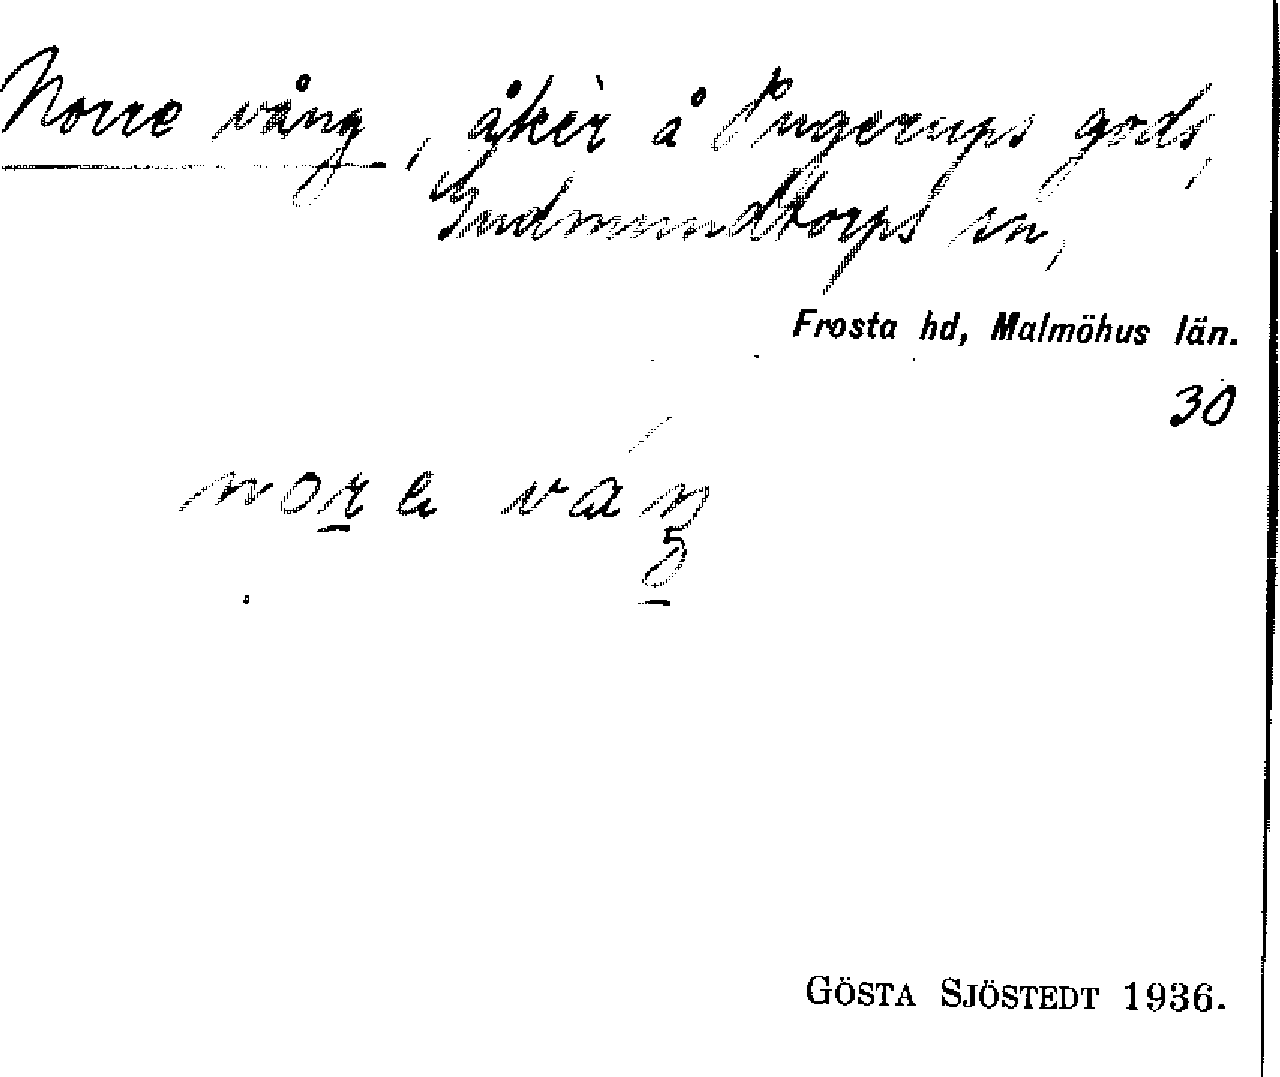 Norre vång, åker å Pugerups gods,
Gudmundtorps sn,
Frosta hd, Malmöhus län.
30
GÖSTA SJÖSTEDT 1936.